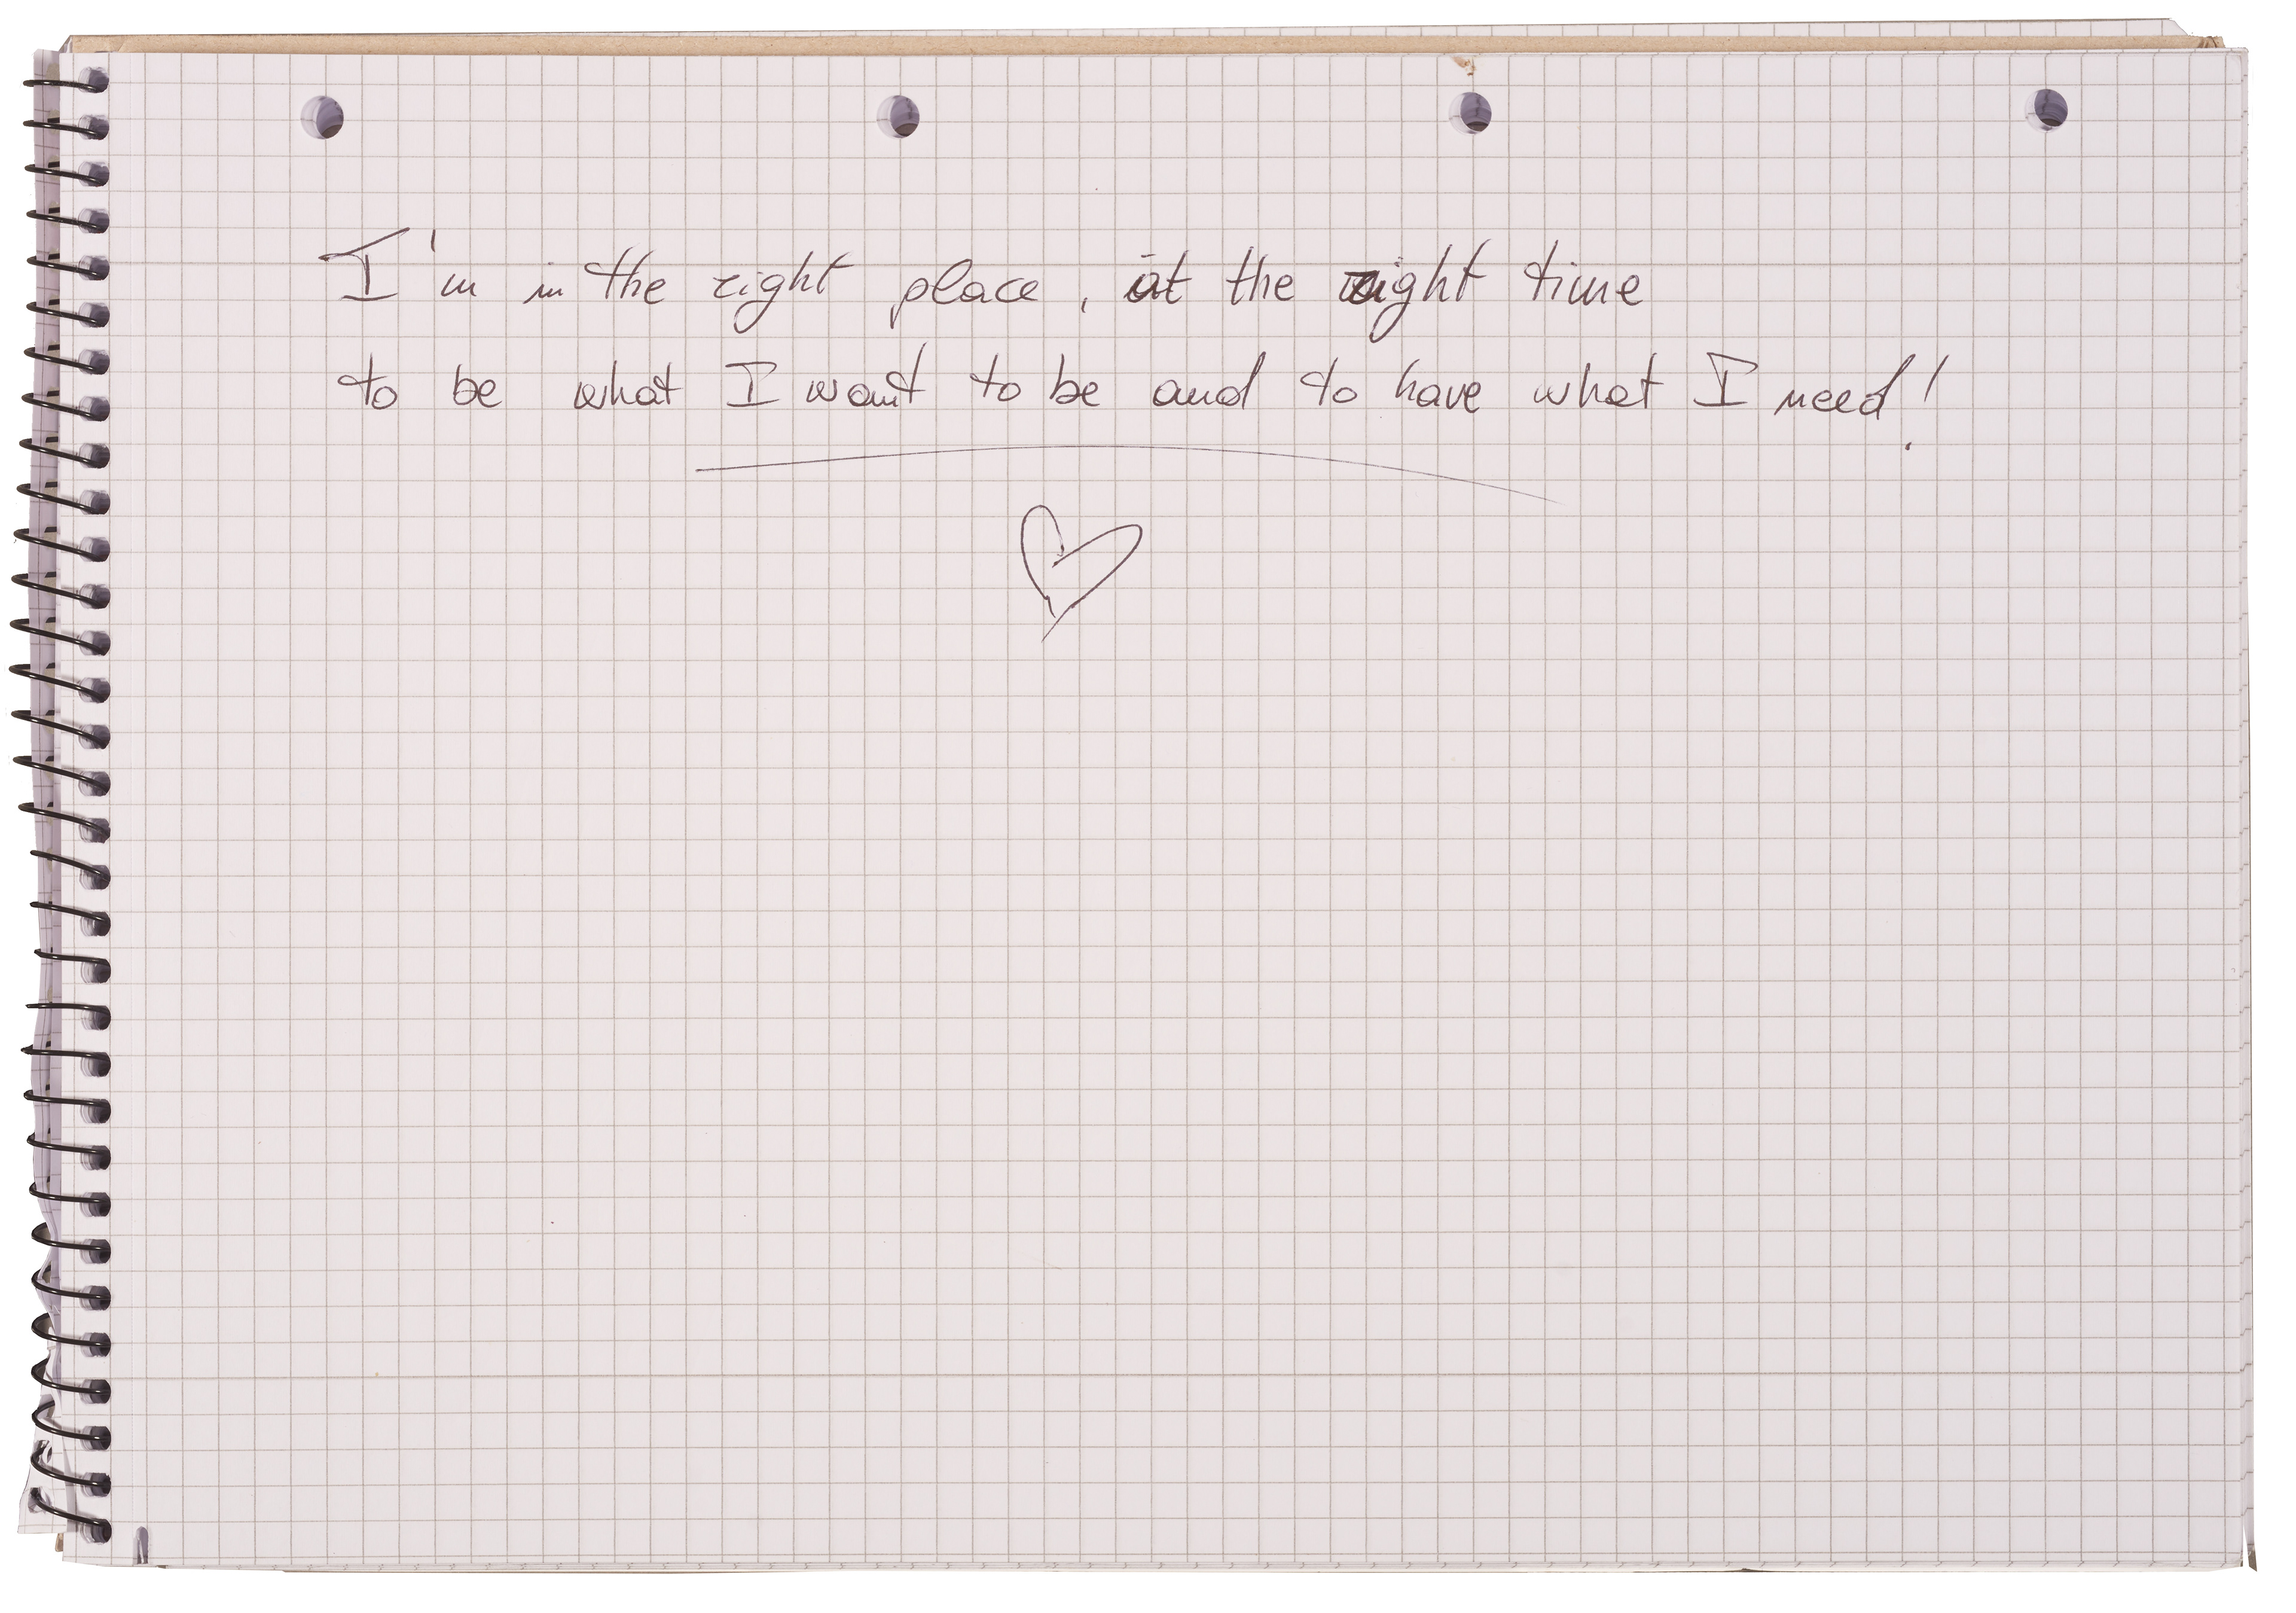 I'm in the right place, at the right time
to be what I want to be and to have what I need!